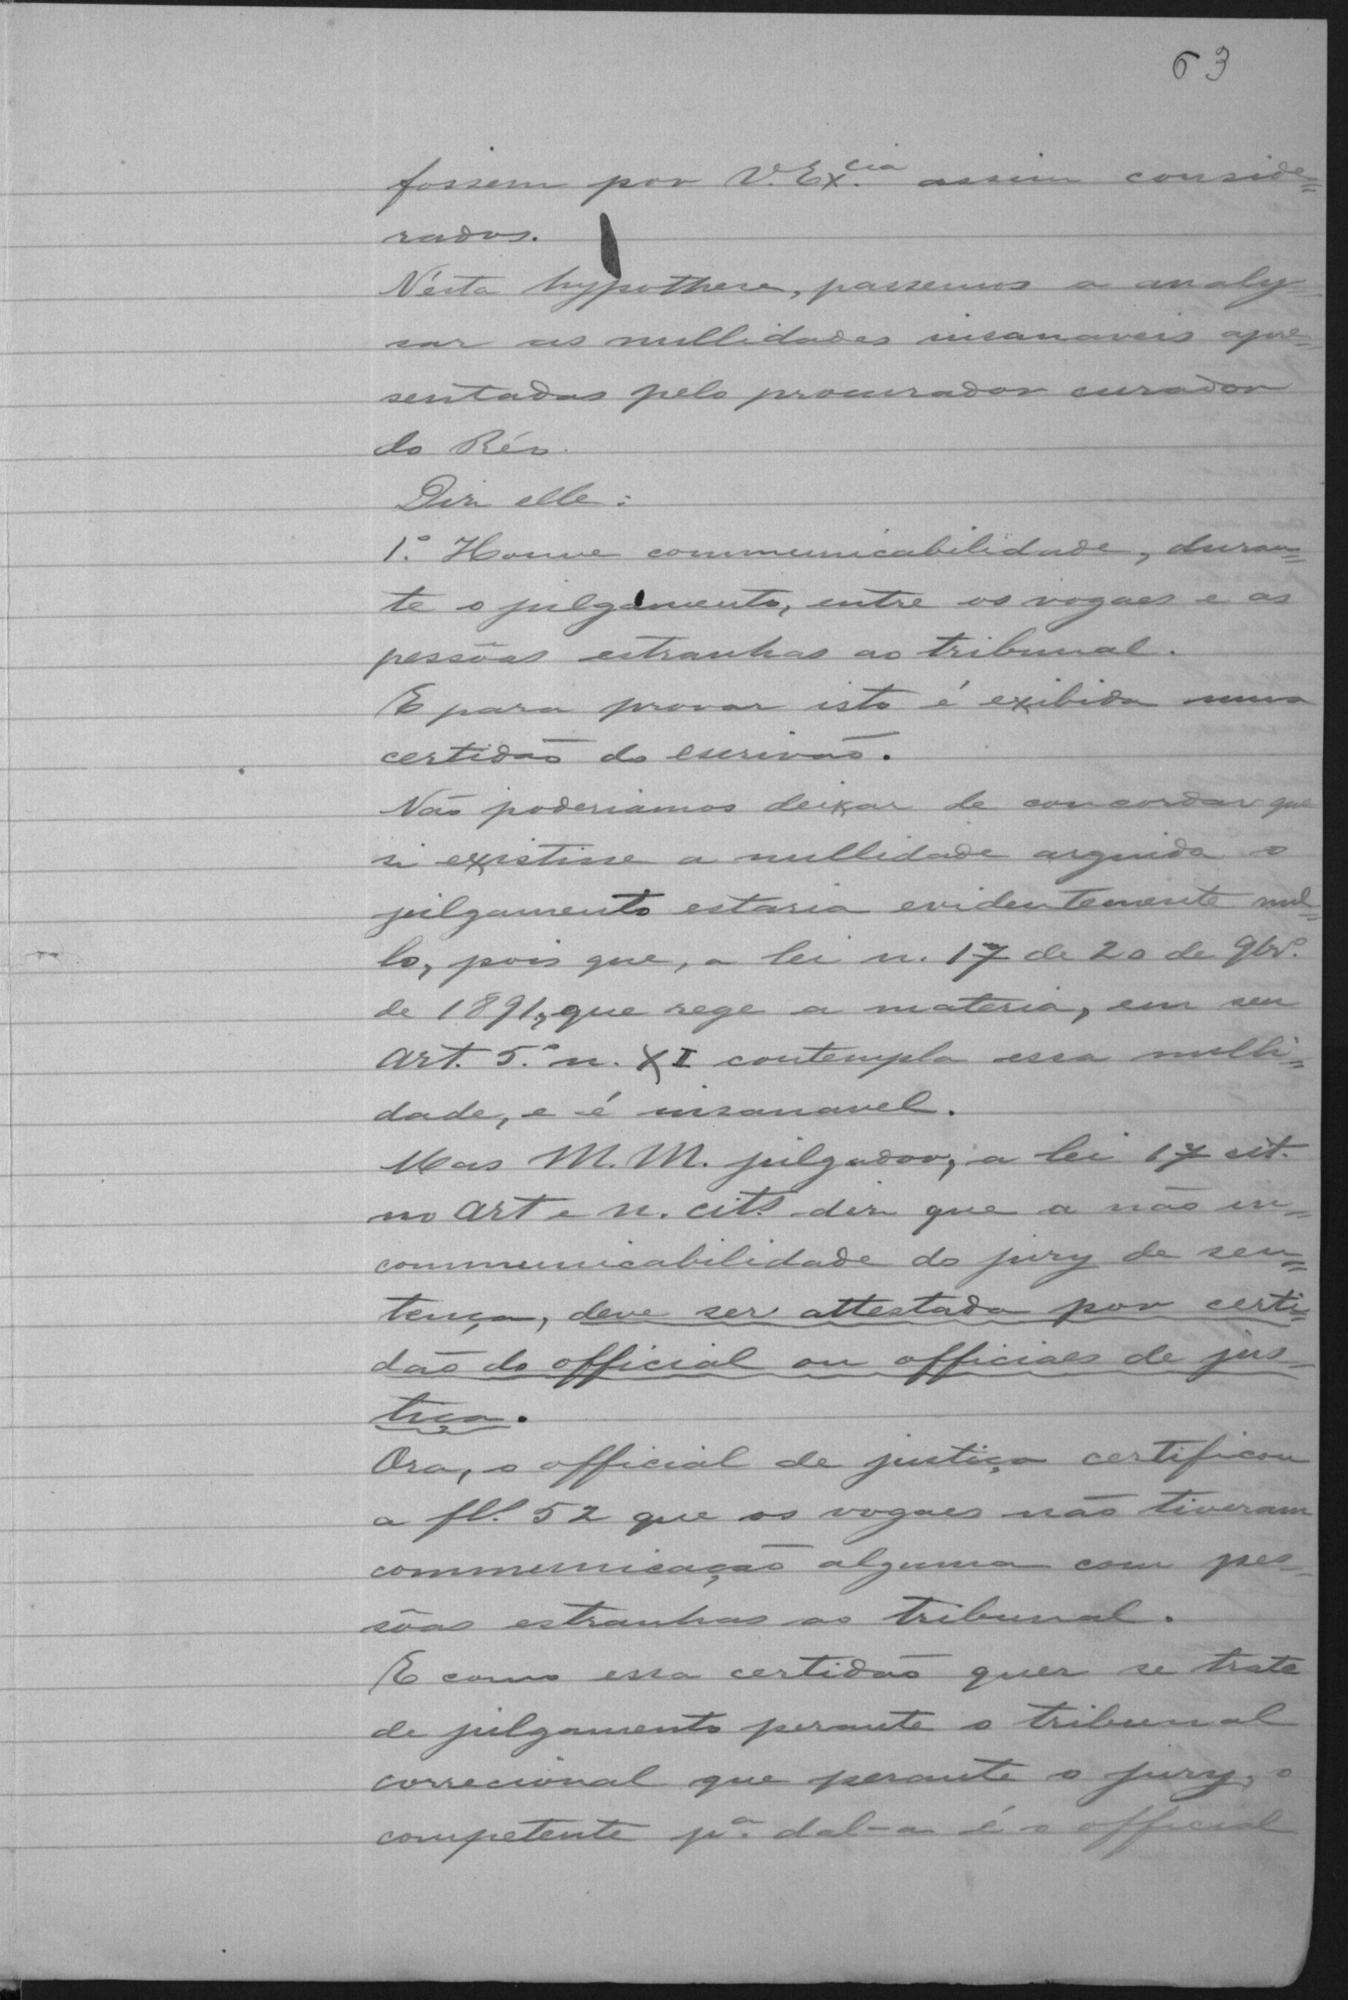 63
fossem por V. Ex.cia assim conside=
rados.
Nésta hypothese, passemos a analy=
sar as nullidades insanaveis apre=
sentadas pelo procurador curador
do Réo.
Diz elle:
1.º Houve communicabilidade, duran=
te o julgamento, entre os vogaes e as
pessôas estranhas ao tribunal.
E para provar isto é exibida uma
certidão do escrivão.
Não poderiamos deixar de concordar que
si existisse a nullidade arguida o
julgamento estaria evidentemente nul=
lo, pois que, a lei n. 17 de 20 de 9br.º
de 1891, que rege a materia, em seu
art. 5.º n. XI contempla essa nulli=
dade, e é insanavel.
Mas M. M. julgador, a lei 17 cit.
no art e n. cits. diz que a não in=
communicabilidade do jury de sen=
tença, deve ser attestada por certi=
dão do official ou officiaes de jus-
tiça.
Ora, o official de justiça certificou
a fl. 52 que os vogaes não tiveram
communicação alguma com pes-
sôas estranhas ao tribunal.
E como essa certidão quer se trate
de julgamento perante o tribunal
correcional que perante o jury, o
competente p.ª dal-a é o official